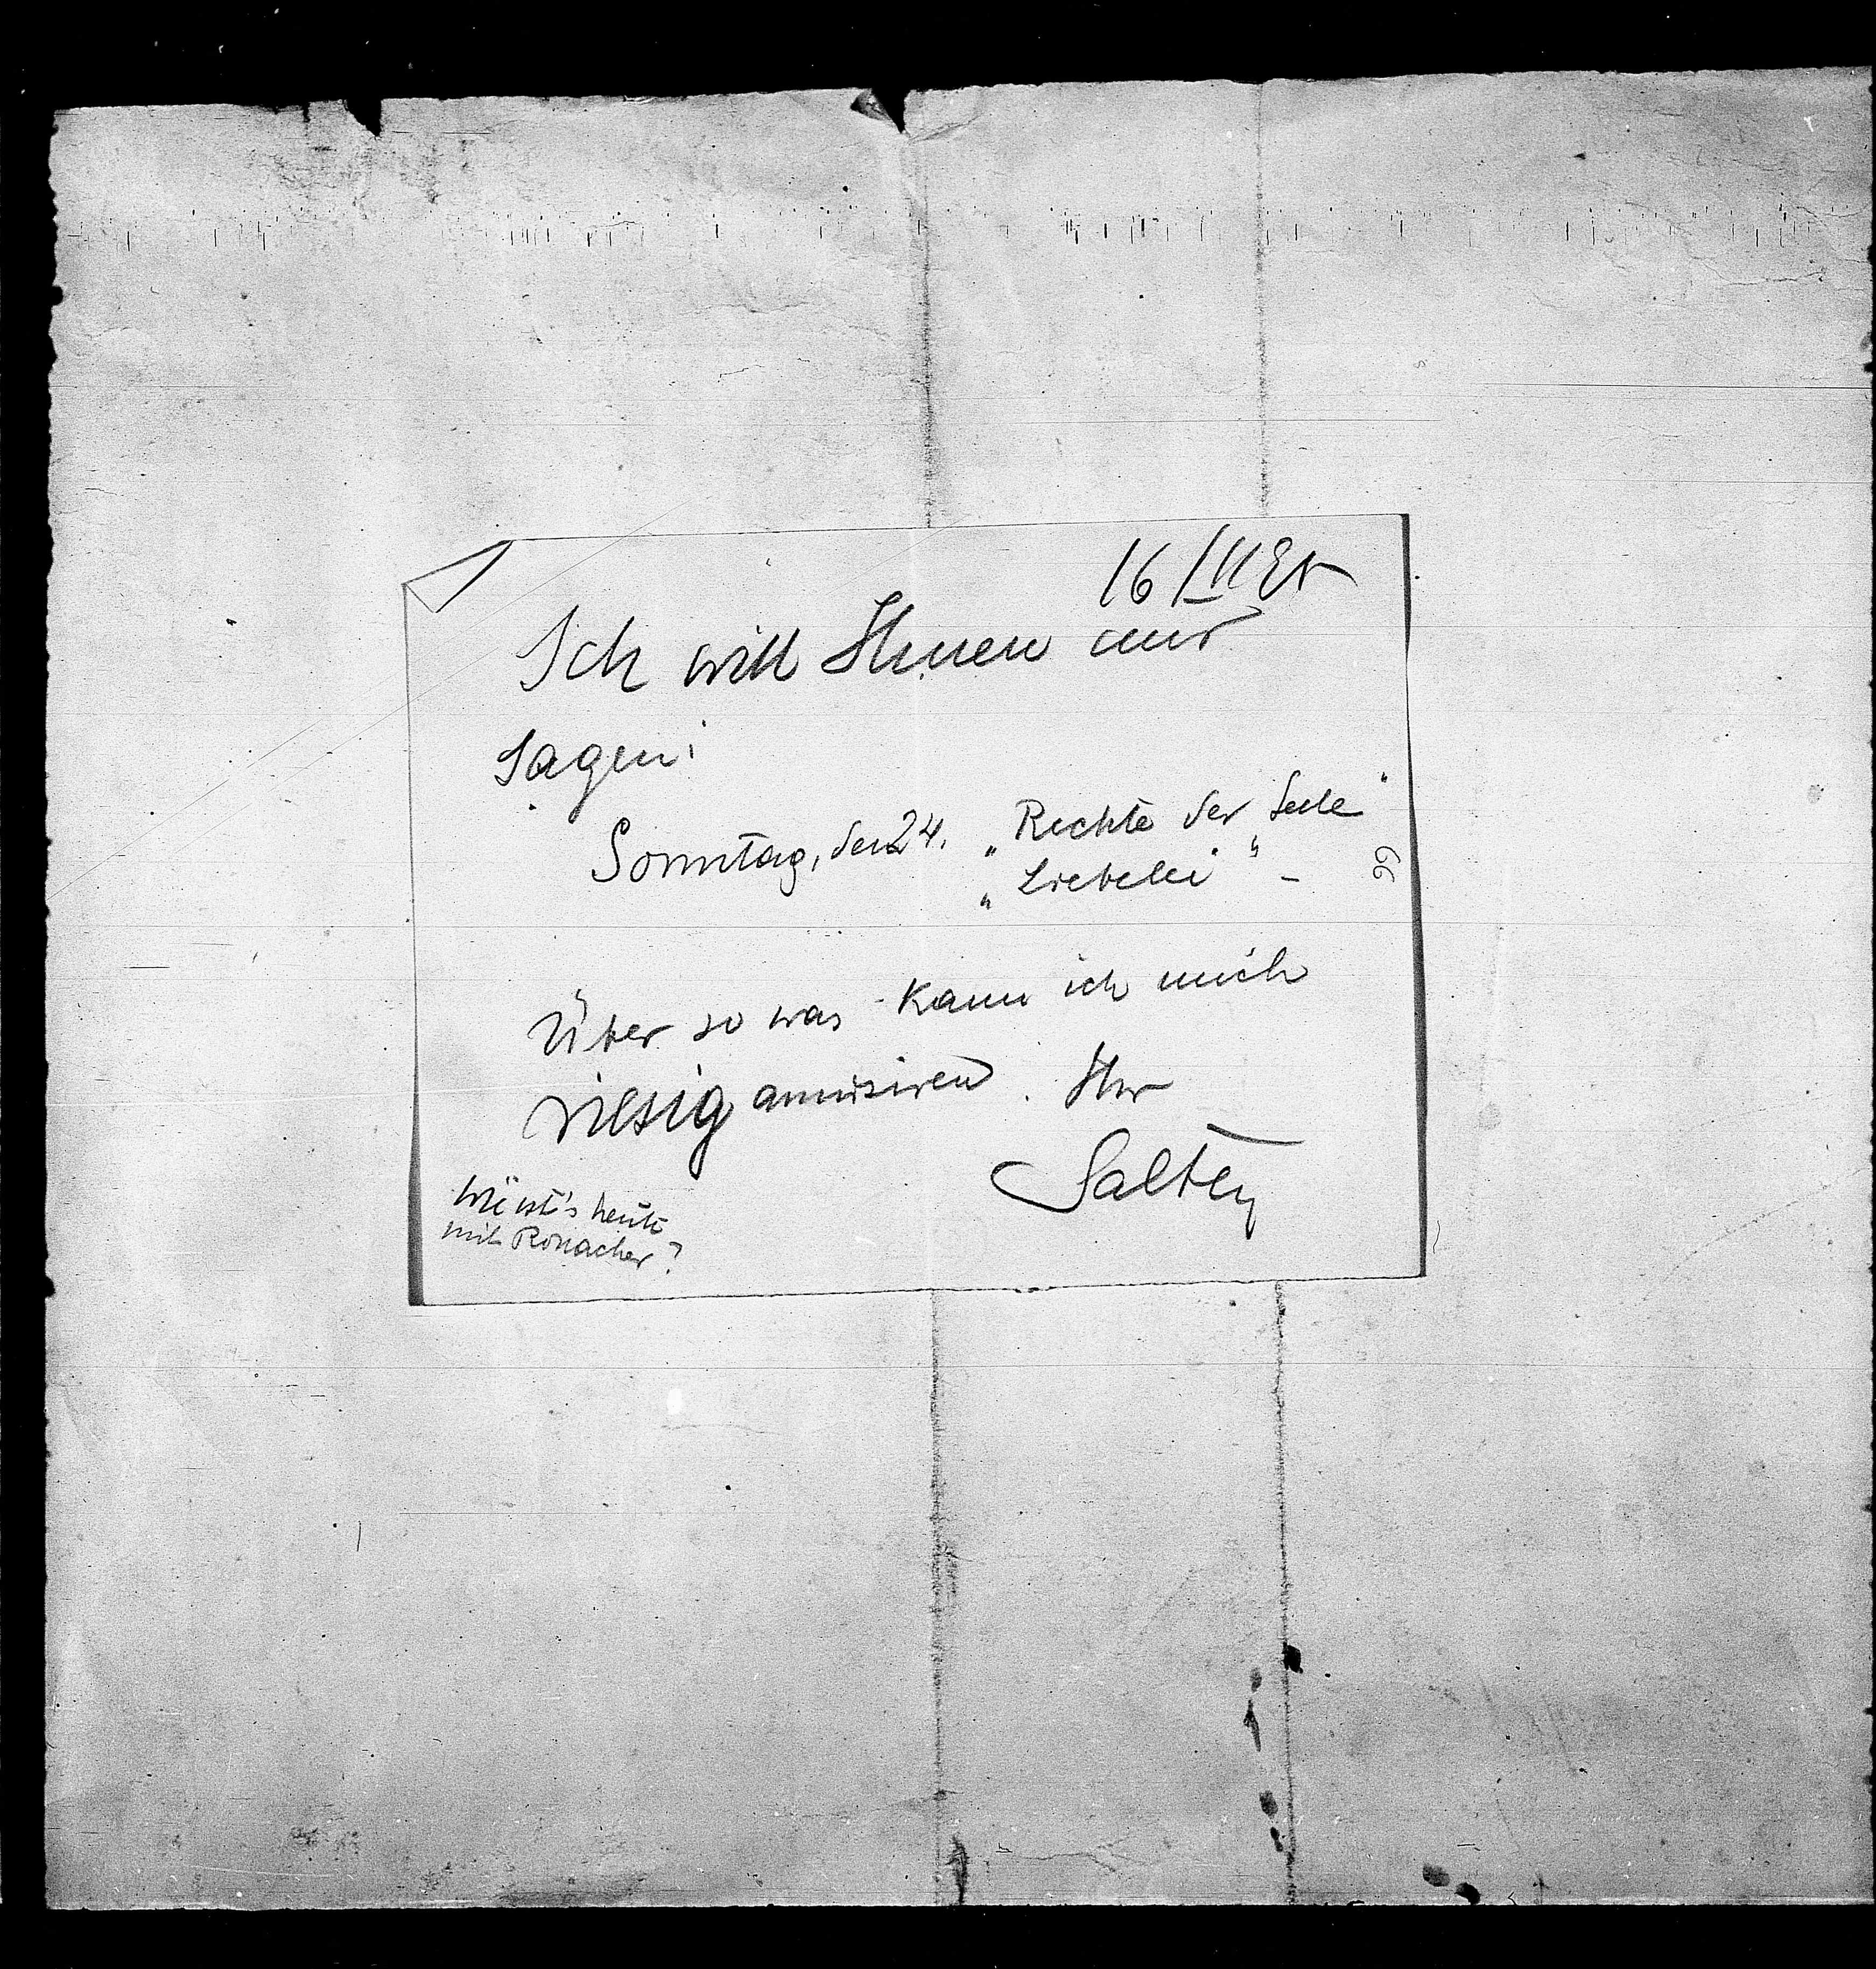 16/III 95
Ich will Ihnen nur
sagen:
Sonntag, den 24. „Rechte der Seele“
„Liebelei“ –
99
Über so was kann ich mich
riesig amüsiren. Ihr
Salten
Wie ist's heute
mit Ronacher?